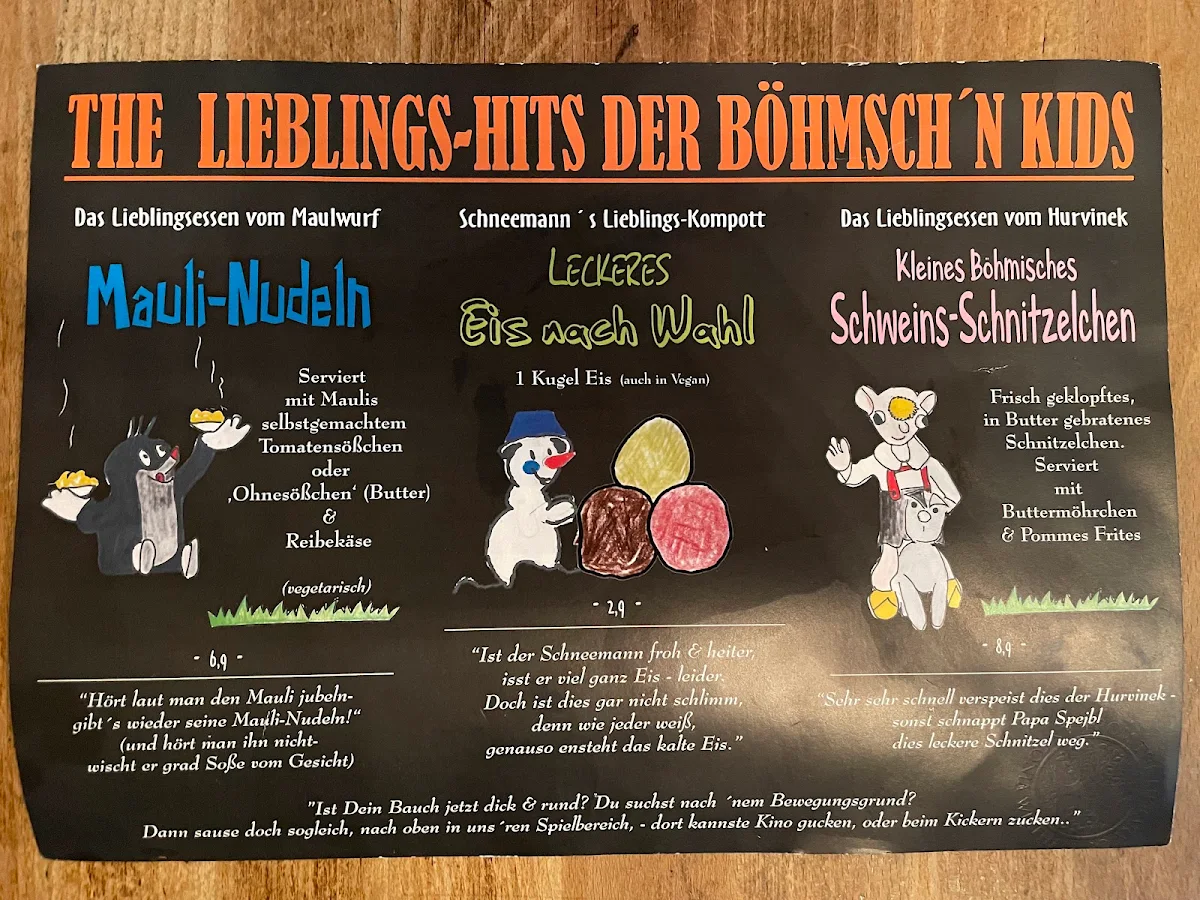 THE LIEBLINGS-HITS DER BÖHMSCH´N KIDS
Das Lieblingsessen vom Maulwurf
Mauli-Nudeln
Serviert
mit Maulis
selbstgemachtem
Tomatensößchen
oder
‚Ohnesößchen‘ (Butter)
&
Reibekäse
(vegetarisch)
- 6,9 -
"Hört laut man den Mauli jubeln-
gibt´s wieder seine Mauli-Nudeln!"
(und hört man ihn nicht-
wischt er grad Soße vom Gesicht)
Schneemann ´s Lieblings-Kompott
Leckeres
Eis nach Wahl
1 Kugel Eis (auch in Vegan)
- 2,9 -
"Ist der Schneemann froh & heiter,
isst er viel ganz Eis - leider.
Doch ist dies gar nicht schlimm,
denn wie jeder weiß,
genauso ensteht das kalte Eis."
Das Lieblingsessen vom Hurvinek
Kleines Böhmisches
Schweins-Schnitzelchen
Frisch geklopftes,
in Butter gebratenes
Schnitzelchen.
Serviert
mit
Buttermöhrchen
& Pommes Frites
- 8,9 -
"Sehr sehr schnell verspeist dies der Hurvinek -
sonst schnappt Papa Spejbl
dies leckere Schnitzel weg."
"Ist Dein Bauch jetzt dick & rund? Du suchst nach ´nem Bewegungsgrund?
Dann sause doch sogleich, nach oben in uns´ren Spielbereich, - dort kannste Kino gucken, oder beim Kickern zucken.."